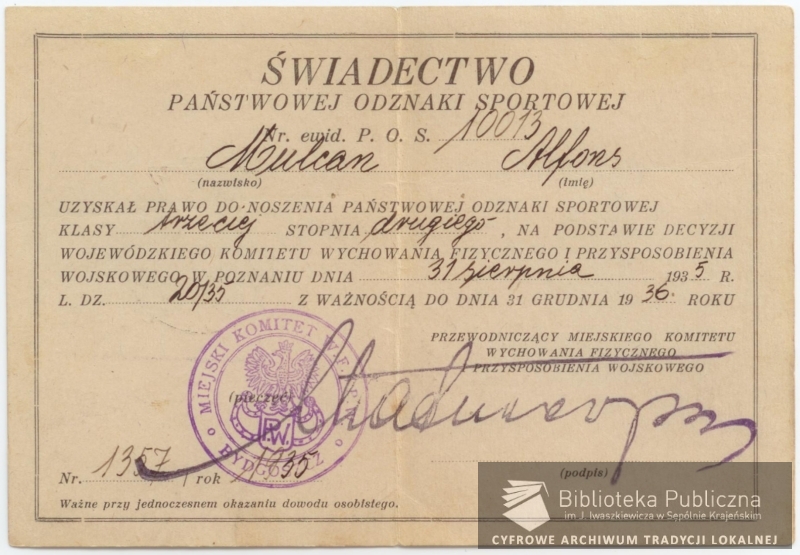 ŚWIADECTWO
PAŃSTWOWEJ ODZNAKI SPORTOWEJ
Nr. ewid. P. O. S. 10013
Mulcan Alfons
(nazwisko) (imię)
UZYSKAŁ PRAWO DO NOSZENIA PAŃSTWOWEJ ODZNAKI SPORTOWEJ
KLASY trzeciej STOPNIA drugiego, NA PODSTAWIE DECYZJI
WOJEWÓDZKIEGO KOMITETU WYCHOWANIA FIZYCZNEGO I PRZYSPOSOBIENIA
WOJSKOWEGO W POZNANIU DNIA 31 sierpnia 1935 R.
L. DZ. 20/35 Z WAŻNOŚCIĄ DO DNIA 31 GRUDNIA 1936 ROKU
PRZEWODNICZĄCY MIEJSKIEGO KOMITETU
WYCHOWANIA FIZYCZNEGO
PRZYSPOSOBIENIA WOJSKOWEGO
MIEJSKI KOMITET W.F. i P.W.
(pieczęć)
P.W.
BYDGOSZCZ
Nr. 1357 / rok 1935
(podpis)
Ważne przy jednoczesnem okazaniu dowodu osobistego.
Biblioteka Publiczna
im J. Iwaszkiewicza w Sępólnie Krajeńskim
CYFROWE ARCHIWUM TRADYCJI LOKALNEJ